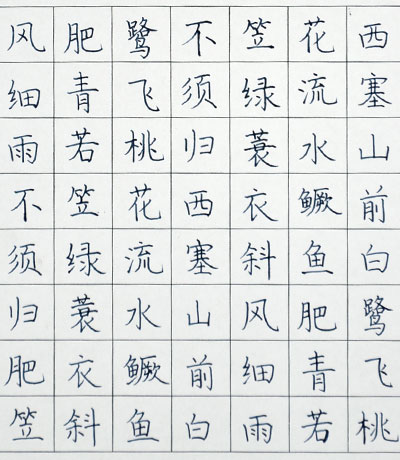 西塞山前白鹭飞桃
花流水鳜鱼肥青若
笠绿蓑衣斜风细雨
不须归西塞山前白
鹭飞桃花流水鳜鱼
肥青若笠绿蓑衣斜
风细雨不须归肥笠